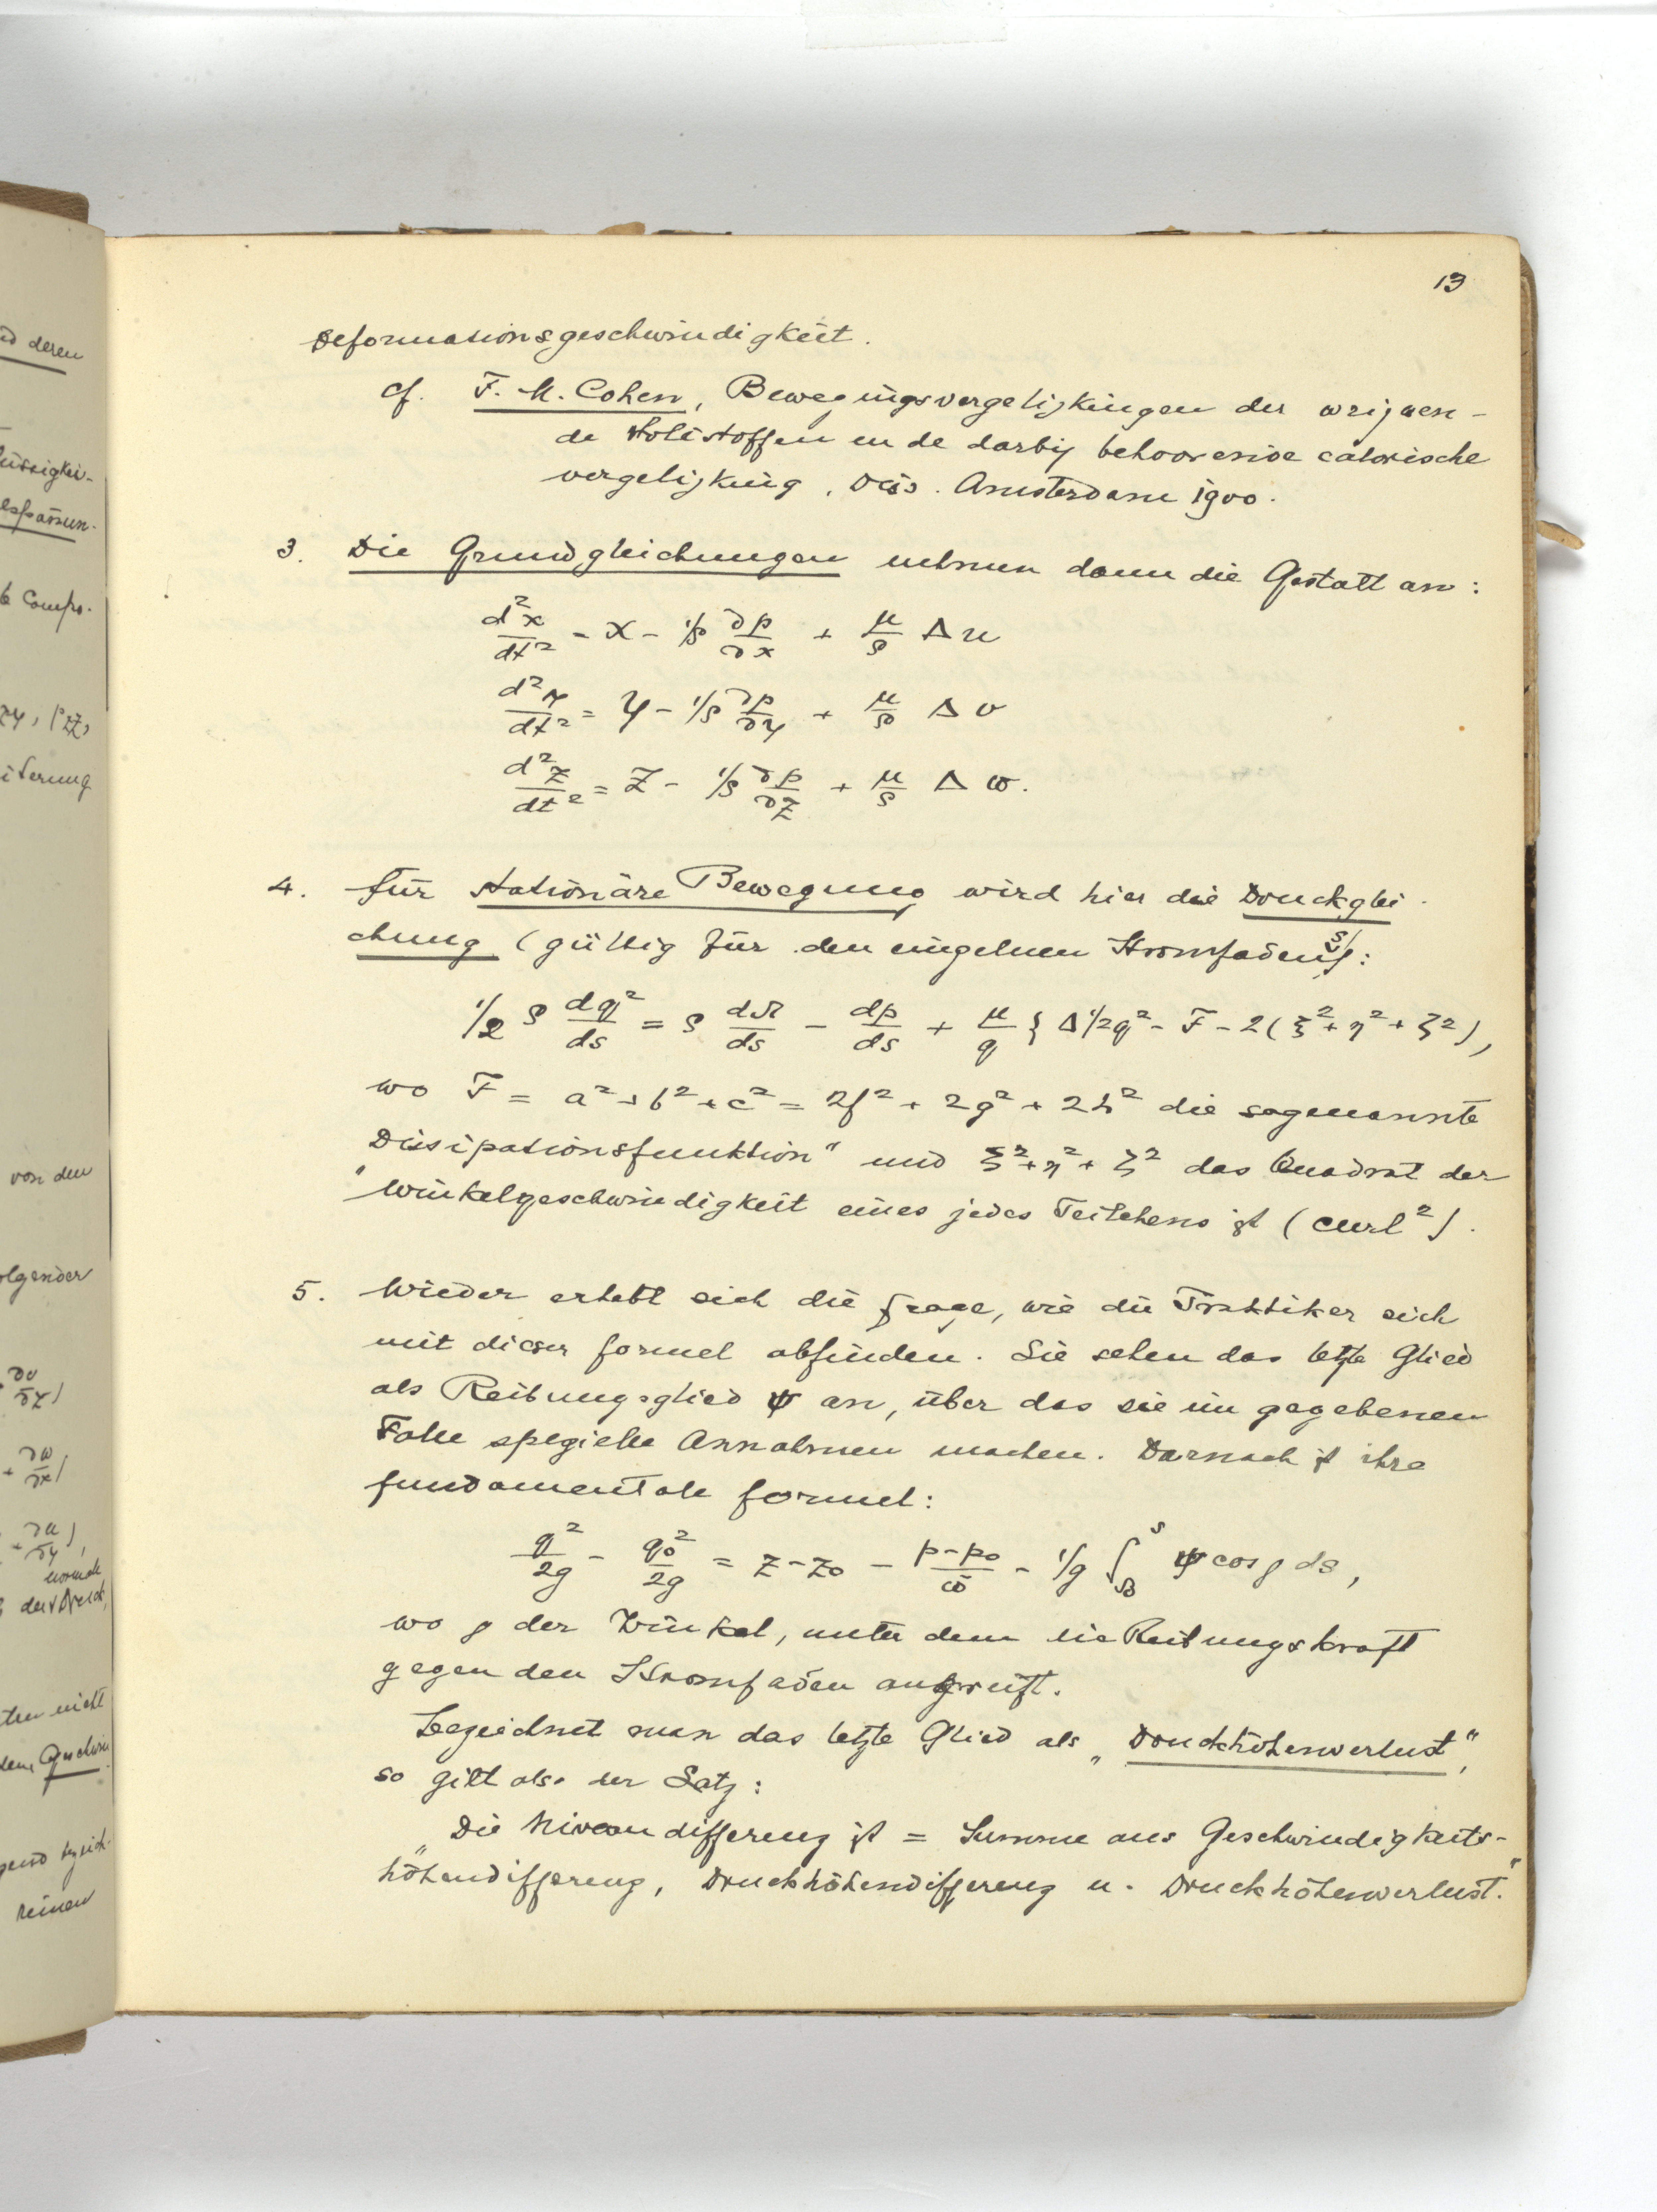 13
Deformationsgeschwindigkeit.
cf. F. M. Cohen, Bewegingsvergelijkingen der wrijven-
de stoffen en de darbij behoorende calorische
vergelijking, Diss. Amsterdam 1900.
3. Die Grundgleichungen nehmen dann die Gestalt an:
d²x/dt² = X - 1/ρ ∂p/∂x + μ/ρ Δu
d²y/dt² = Y - 1/ρ ∂p/∂y + μ/ρ Δv
d²z/dt² = Z - 1/ρ ∂p/∂z + μ/ρ Δw.
4. Für stationäre Bewegung wird hier die Druckglei-
chung (gültig für den einzelnen Stromfaden s):
1/2 ρ dq²/ds = ρ dΩ/ds - dp/ds + μ/q { Δ 1/2 q² - F - 2(ξ² + η² + ζ²),
wo F = a² + b² + c² = 2f² + 2g² + 2h² die sogenannte
"Dissipationsfunktion" und ξ² + η² + ζ² das Quadrat der
Winkelgeschwindigkeit eines jedes Teilchens ist (curl²).
5. Wieder erhebt sich die Frage, wie die Praktiker sich
mit dieser Formel abfinden. Sie sehen das letzte Glied
als Reibungsglied ψ an, über das sie im gegebenen
Falle spezielle Annahmen machen. Darnach ist ihre
fundamentale Formel:
q²/2g - q₀²/2g = z - z₀ - p-p₀/ω̄ - 1/g ∫ₛ₀ˢ ψ cos ρ ds,
wo ρ der Winkel, unter dem die Reibungskraft
gegen den Stromfaden angreift.
Bezeichnet man das letzte Glied als „Druckhöhenverlust",
so gilt also der Satz:
„Die Niveaudifferenz ist = Summe aus Geschwindigkeits-
höhendifferenz, Druckhöhendifferenz u. Druckhöhenverlust."